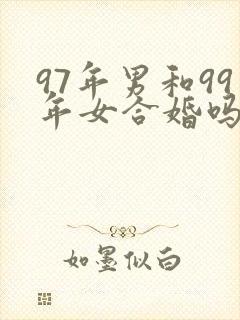 97年男和99
年女合婚吗
如墨似白